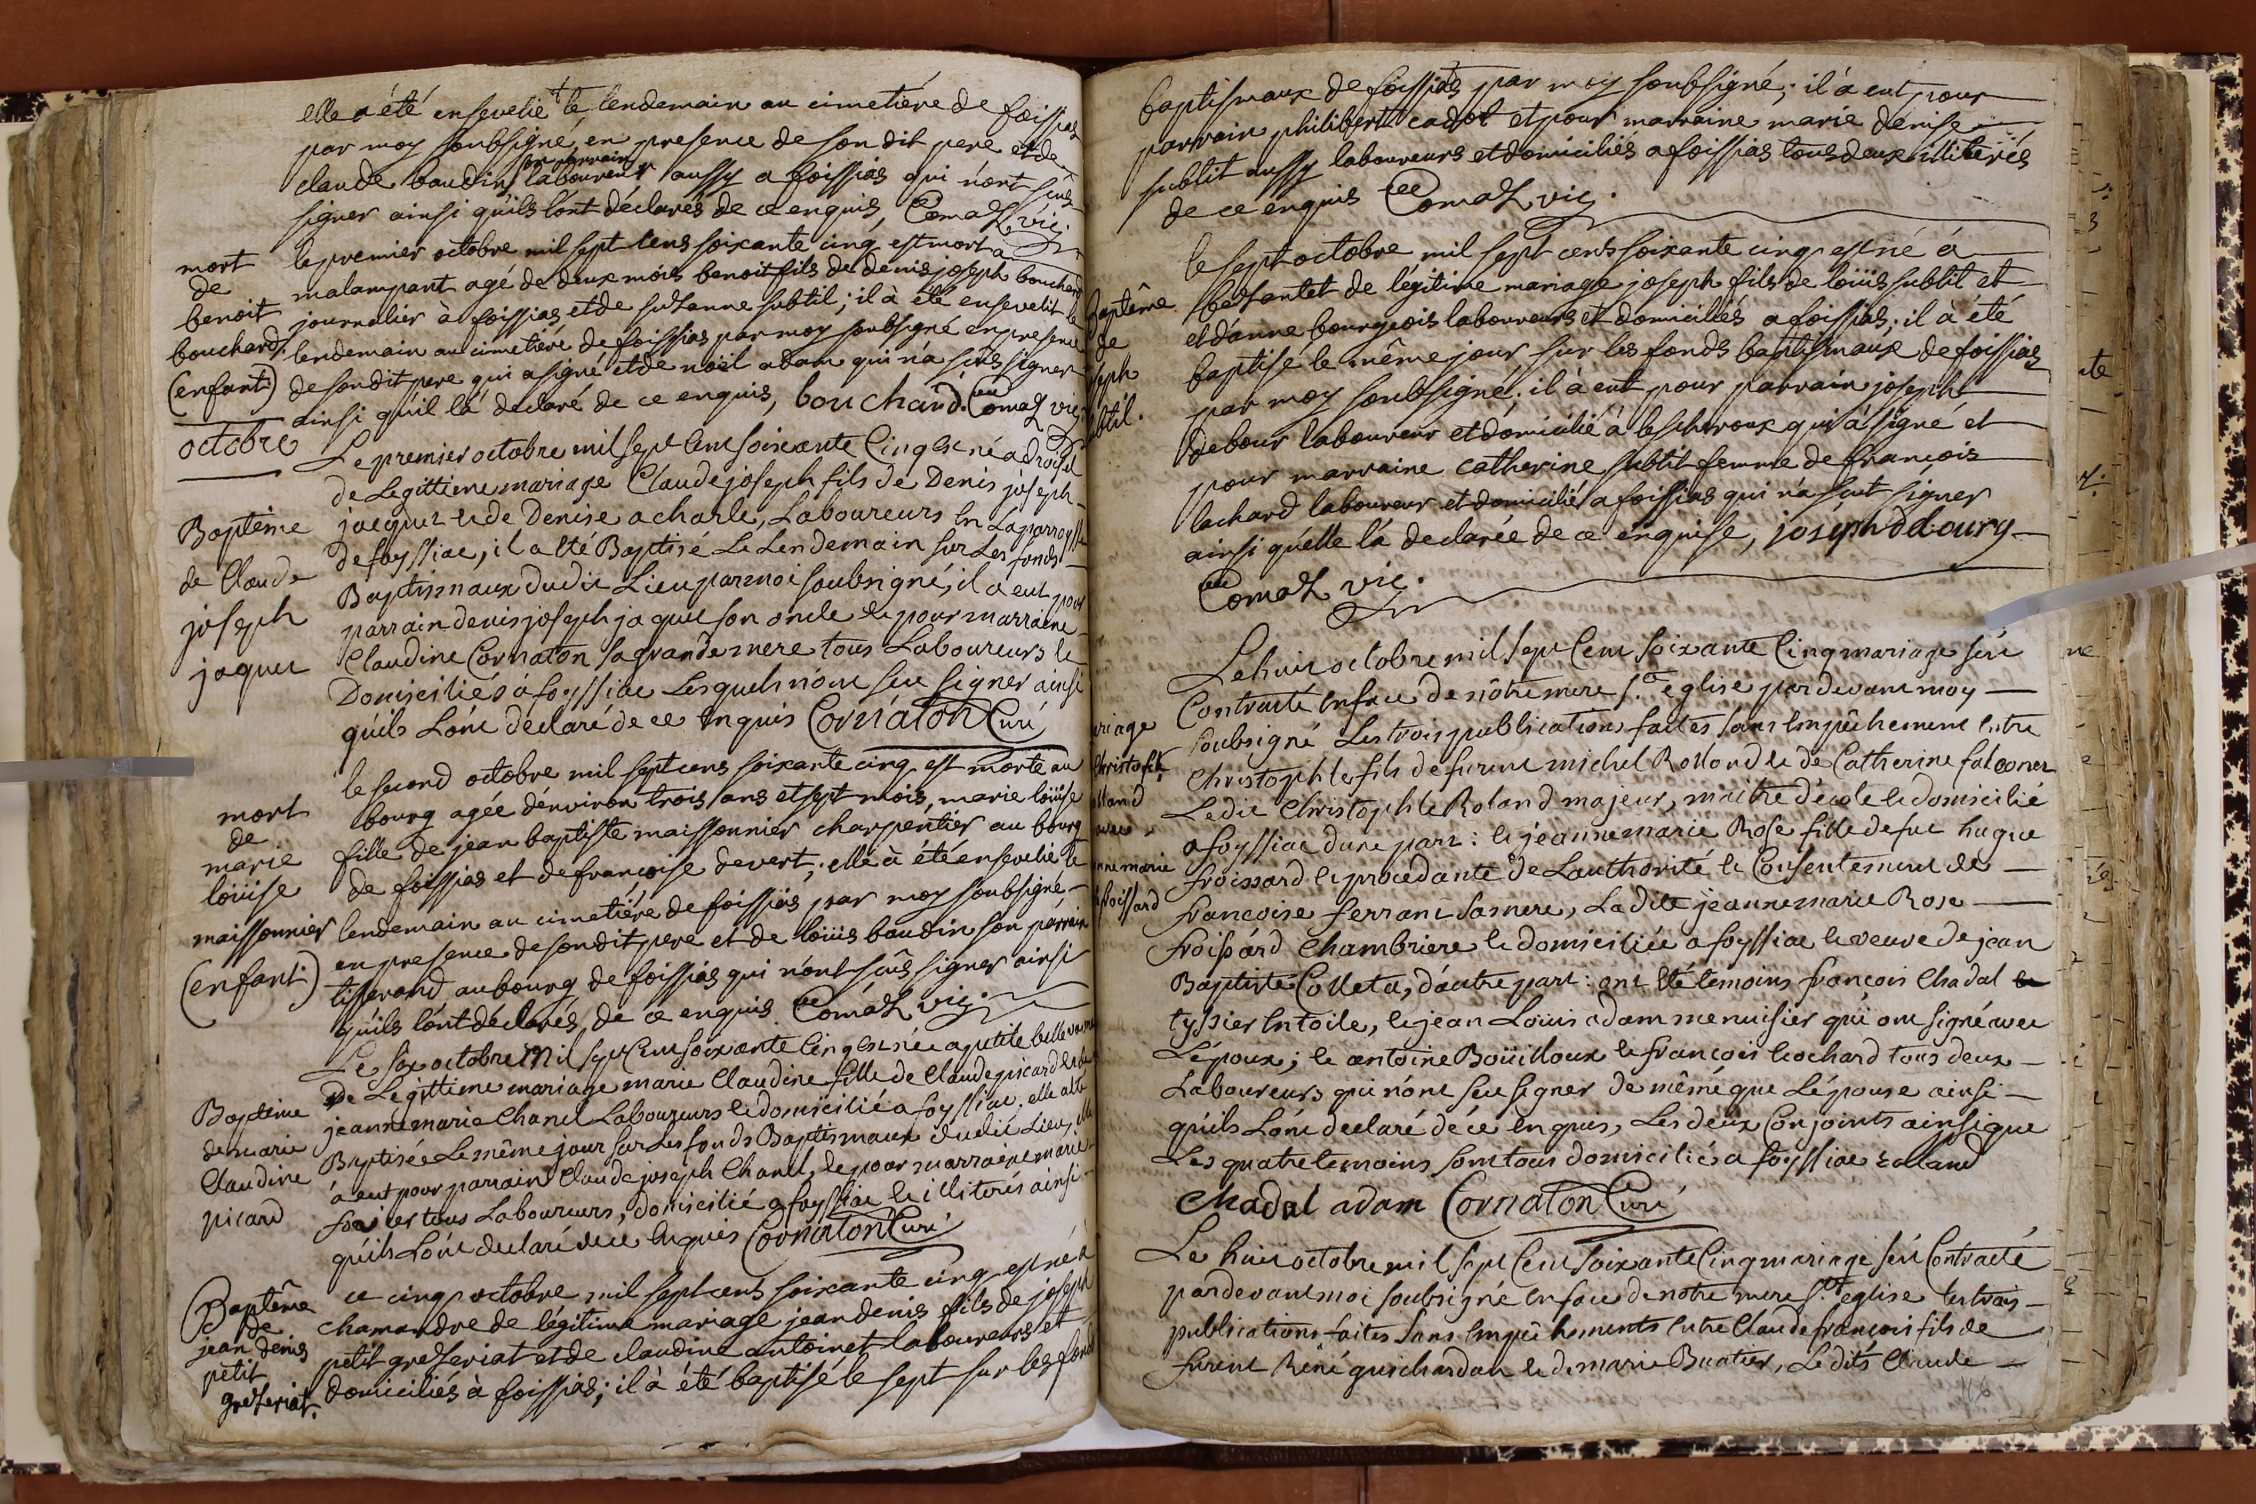 elle a été ensevelie le lendemain au cimetiére de foissias
par moy soubsigné, en presence de son dit pere et de
claude baudin son parrain laboureur aussy a foissias qui n'ont sçus
signer ainsi qu'ils l'ont déclarés de ce enquis, Comaz vic.
mort
de
benoit
bouchard.
(enfant.)
le premier octobre mil sept cens soixante cinq est mort a
malampant agé de deux mois benoit fils de denis joseph bouchard
journalier à foissias et de suzanne subtil; il à été ensevelit le
lendemain au cimetiére de foissias par moy soubsigné en presence
de son dit pere qui a signé et de noël adam qui n'a sçus signer
ainsi qu'il l'a declaré de ce enquis, bouchard. Comaz vic.
octobre
Baptême
de Claude
joseph
jaquet
Le premier octobre mil sept Cent soixante Cinq est né a
de Legittime mariage Claude joseph fils de Denis joseph
jacquet et de Denise acharle, Laboureurs En La parroysse
de foyssiac, il a été Baptisé Le Lendemain sur Les fonds
Baptismaux dudit Lieu par moi soubsigné, il a eut pour
parrain denis joseph jaquet son oncle et pour marraine
Claudine Cornaton sa grande mere tous Laboureurs et
Domiciliés à foyssiac Lesquels n'ont sçu signer ainsi
qu'ils L'ont déclaré de ce Enquis Cornaton Curé
mort
de
marie
loüise
maissonnier
(enfant.)
le second octobre mil sept cens soixante cinq est morte au
bourg agée d'environ trois ans et sept mois, marie loüise
fille de jean baptiste maissonnier charpentier au bourg
de foissias et de françoise devert; elle à été ensevelie le
lendemain au cimetiére de foissias par moy soubsigné
en presence de son dit pere et de loüis baudin son parrain
tisserand au bourg de foissias qui n'ont sçûs signer ainsi
qu'ils l'ont déclarés, de ce enquis Comaz vic.
Baptême
de marie
Claudine
picard
Le six octobre Mil sept Cent soixante Cinq est née a petite
de Legittime mariage marie Claudine fille de Claude picard et de
jeanne marie Chanel Laboureurs et domicilié a foyssiac. elle a été
Baptisée Le même jour sur Les fonds Baptismaux dudit Lieu, elle
à eut pour parrain Claude joseph Chanel, et pour marraine marie
tous Laboureurs, domicilié a foyssiac et illiterés ainsi
qu'ils L'ont declaré de ce Enquis Cornaton Curé
Baptême
de
jean denis
petit
grezeriat.
ce cinq octobre mil sept cens soixante cinq est né a
chamandre de légitime mariage jean denis fils de joseph
petit grezeriat et de claudine antoinet laboureurs et
domiciliés à foissias; il à été baptisé le sept sur les fonds
baptismaux de foissias par moy soubsigné; il à eut pour
parrain philibert cadot et pour marraine marie denise
subtit aussy laboureurs et domiciliés a foissias tous deux illiterés
de ce enquis Comaz vic.
Baptême
de
joseph
subtil.
le sept octobre mil sept cens soixante cinq est né á
besantet de légitime mariage joseph fils de loüis subtit et
et d'anne bourgeois laboureurs et domiciliés a foissias; il à été
baptise le même jour sur les fonds baptismaux de foissias
par moy soubsigné; il à eut pour parrain joseph
debour laboureur et domicilié à lescheroux qui à signé et
pour marraine catherine subtit femme de francois
lachard laboureur et domicilié a foissias qui n'a sçut signer
ainsi qu'elle l'a declarée de ce enquise, joseph debourg
Comaz vic.
mariage
Christophle
rolland
avec
jeanne marie
froissard
Le huit octobre mil sept Cent soixante Cinq mariage fut
Contracté En face de nôtre mere Ste eglise par devant moy
soubsigné Les trois publications faites sans Empêchement Entre
Christophle fils de furent michel Rolland et de Catherine falconet
Ledit Christophle Roland majeur, maitre d'ecole et domicilié
a foyssiac d'une part: et jeanne marie Rose fille de fut hugue
froissard et procedante de L'authorité et Consentement de
francoise ferrant sa mere, Ladite jeanne marie Rose
froissard Chambriere et domiciliée a foyssiac et veuve de jean
Baptiste Colleta, d'autre part: ont été temoins françois Chadal
tyssier En toile, et jean Loüis adam menuisier qui ont signé avec
L'époux; et antoine Boüilloux et francois Cochard tous deux
Laboureurs qui n'ont sçu signer de même que L'épouse ainsi
qu'ils L'ont declaré de ce Enquis, Les deux Conjoints ainsi que
Les quatre temoins sont tous domicilié a foyssiac rolland
chadal adam Cornaton Curé
Le huit octobre mil sept Cent soixante Cinq mariage fut Contracté
par devant moi soubsigné En face de notre mere Ste eglise Les trois
publications faites sans Empêchements Entre Claude francois fils de
furent Réné guichardan et de marie Buatier, Ledit Claude